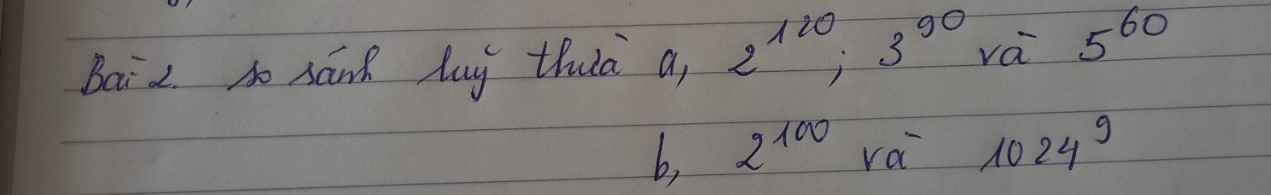 Bài 2. so sánh luỹ thừa a, 2^120; 3^90 và 5^60
b, 2^100 và 1024^9